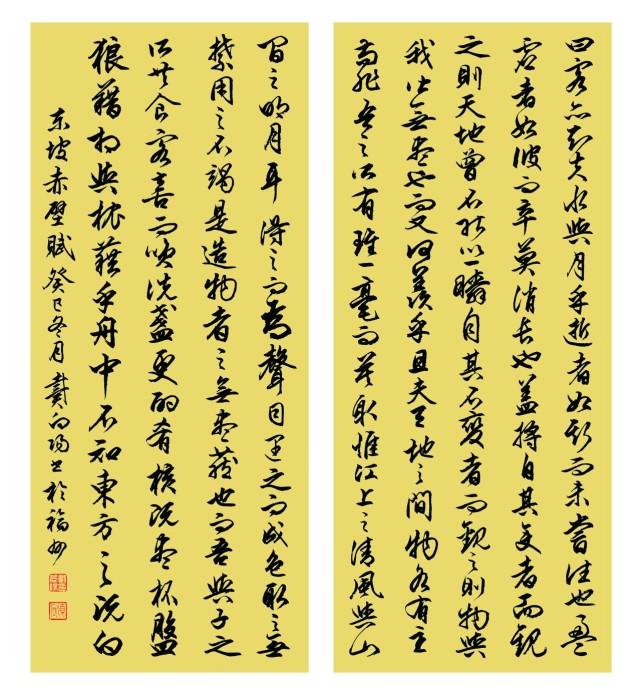 曰客亦知夫水與月乎逝者如斯而未嘗往也盈
虛者如彼而卒莫消長也蓋將自其變者而觀
之則天地曾不能以一瞬自其不變者而觀之則物與
我皆無盡也而又何羨乎且夫天地之間物各有主
苟非吾之所有雖一毫而莫取惟江上之清風與山
間之明月耳得之而為聲目遇之而成色取之無
禁用之不竭是造物者之無盡藏也而吾與子之
所共食客喜而笑洗盞更酌肴核既盡杯盤
狼藉相與枕藉乎舟中不知東方之既白
东坡赤壁賦癸巳冬月戴向陽书於福州